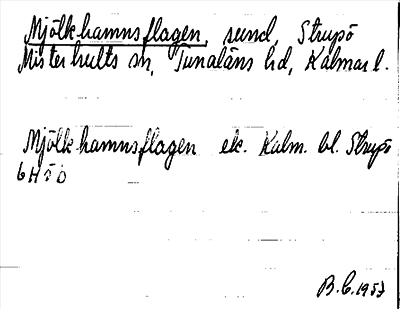 Mjölkhamnsflagen, sund, Strupö
Misterhults sn, Tunaläns hd, Kalmar l.
Mjölkhamnsflagen ek. Kalm. bl. Strupö
6H80
B.C. 1953